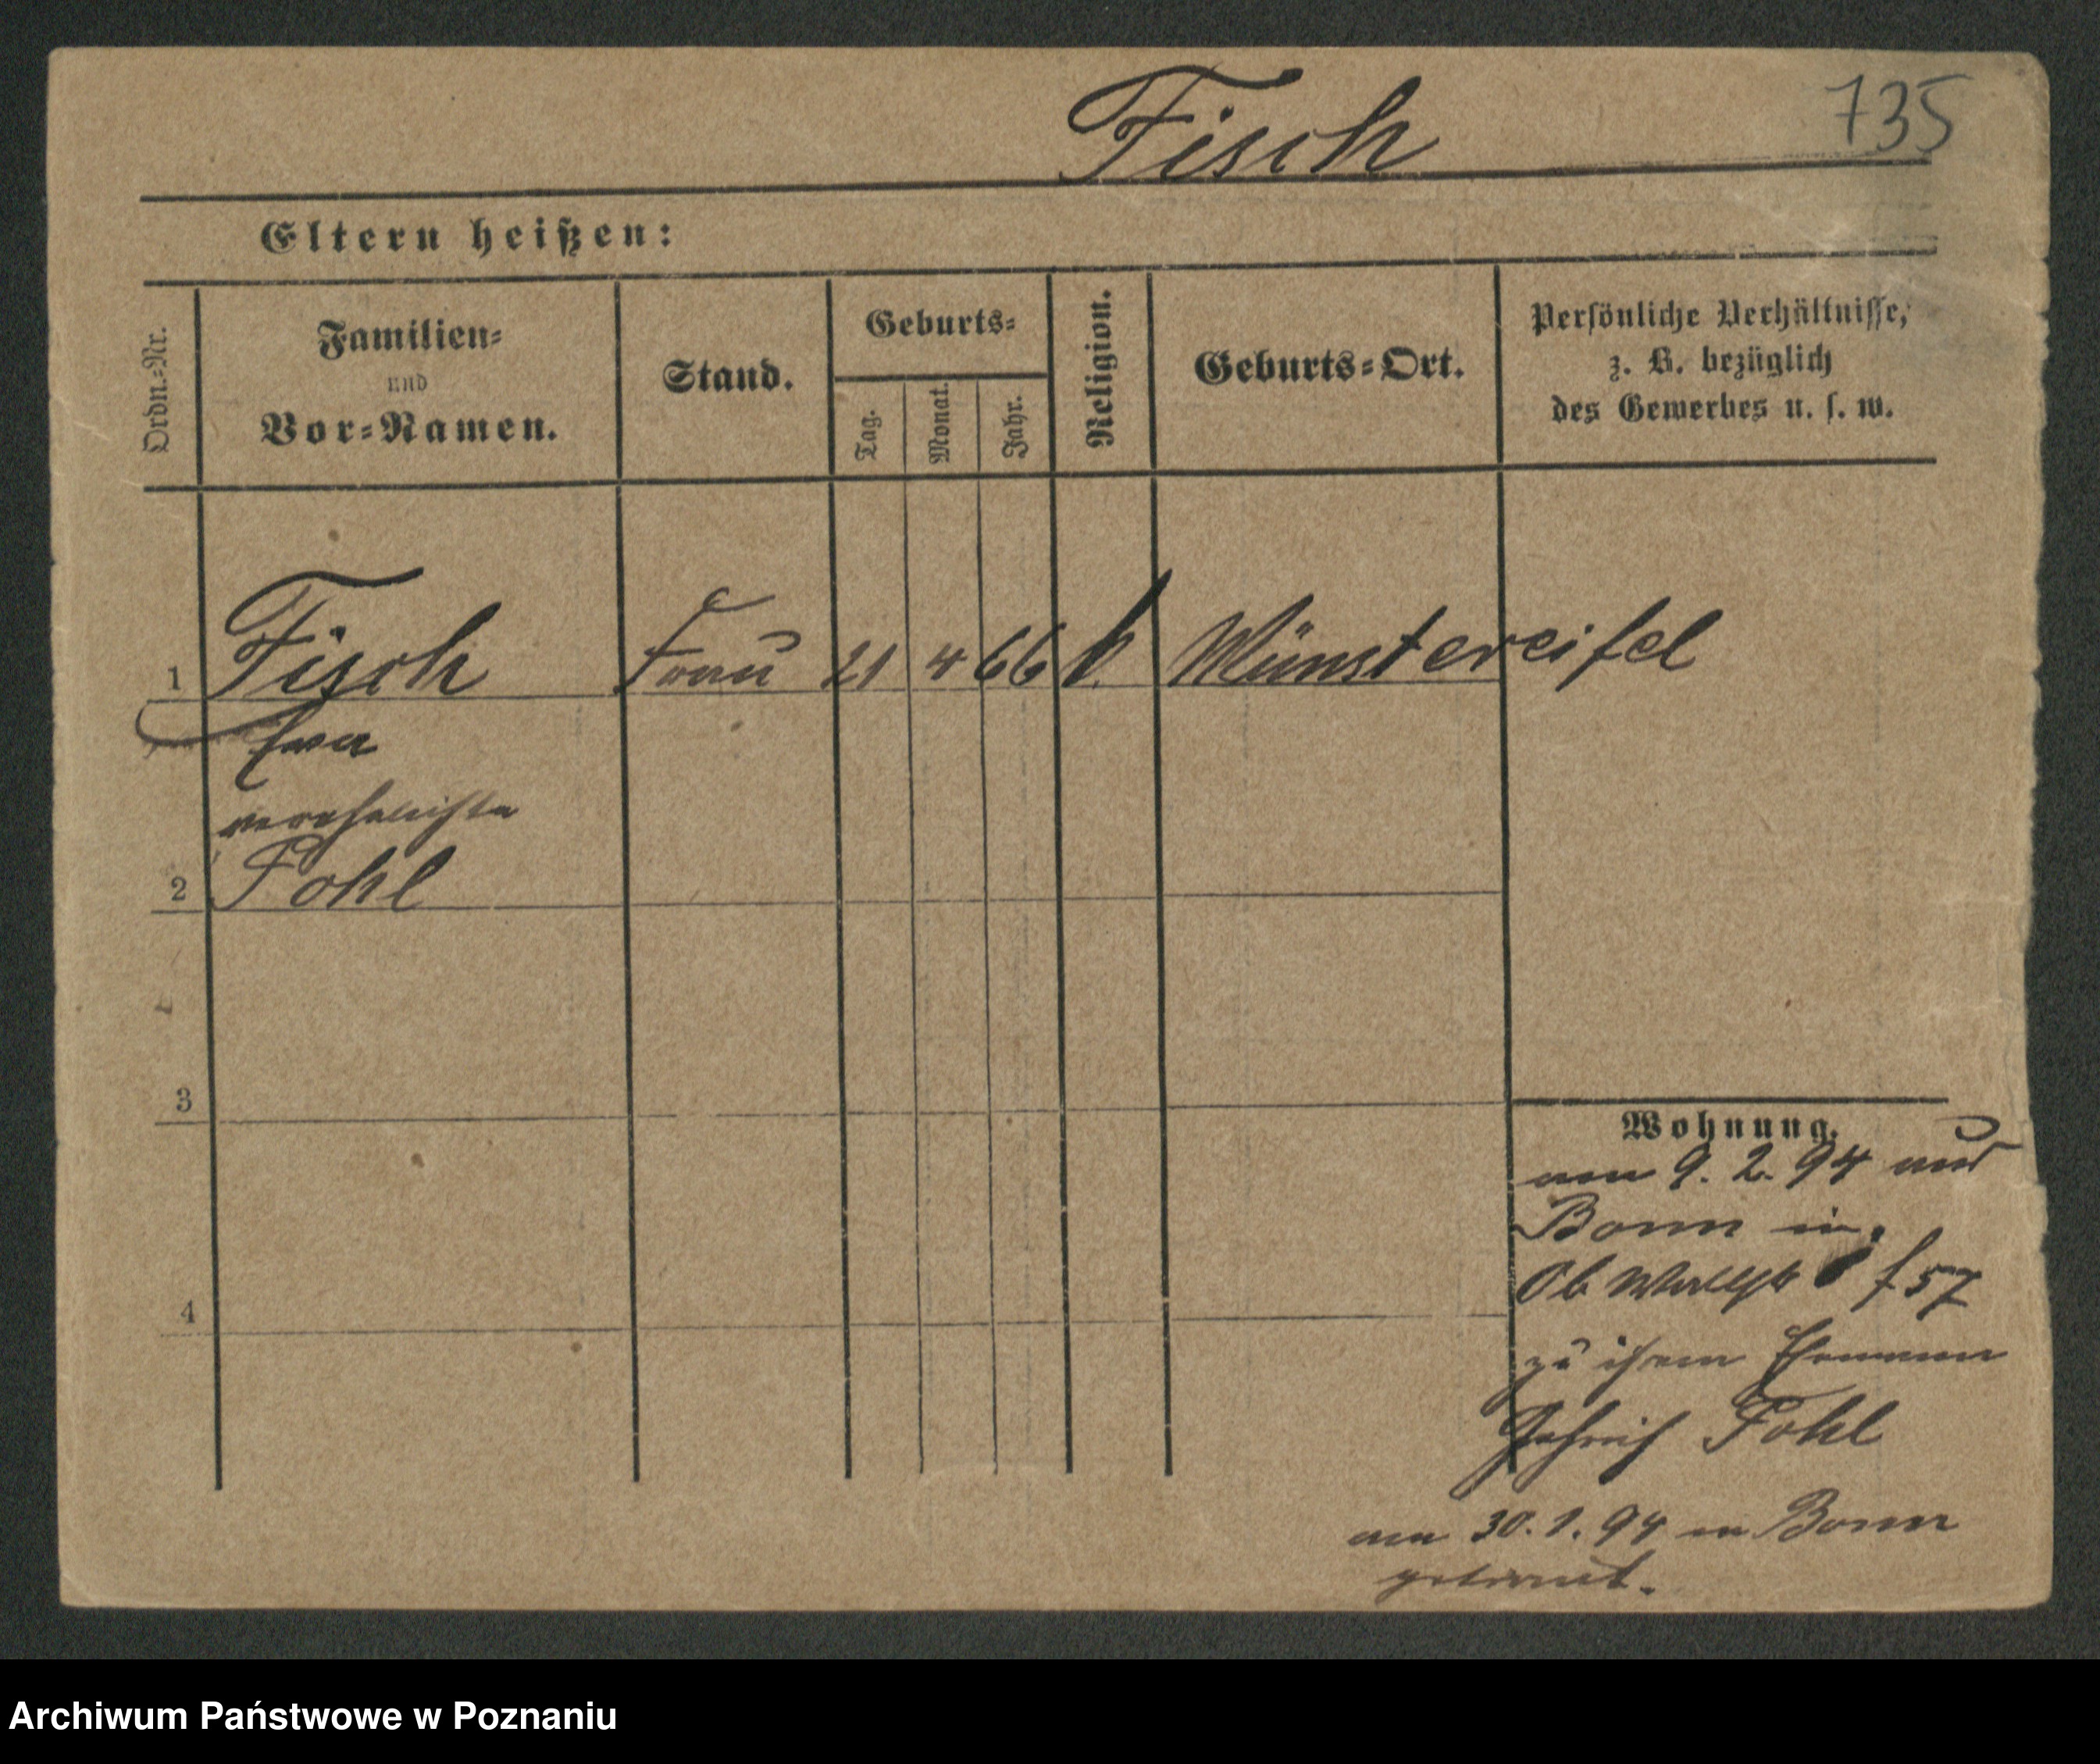 Fisch
735
Eltern heißen:
Ordn.-Nr.
Familien-
und
Vor-Namen.
Stand.
Geburts-
Tag.
Monat.
Jahr.
Religion.
Geburts-Ort.
Persönliche Verhältnisse,
z. B. bezüglich
des Gewerbes u. s. w.
1 Fisch Frau 21 4 66 k. Münstereifel
Ewa
verehelichte
2 Fohl
3
4
Wohnung.
am 9. 2. 94 aus
Bonn in
Ob Wallstr 57
zu ihrem Ehemann
Fohl
am 30. 1. 94 in Bonn
getraut.
Archiwum Państwowe w Poznaniu